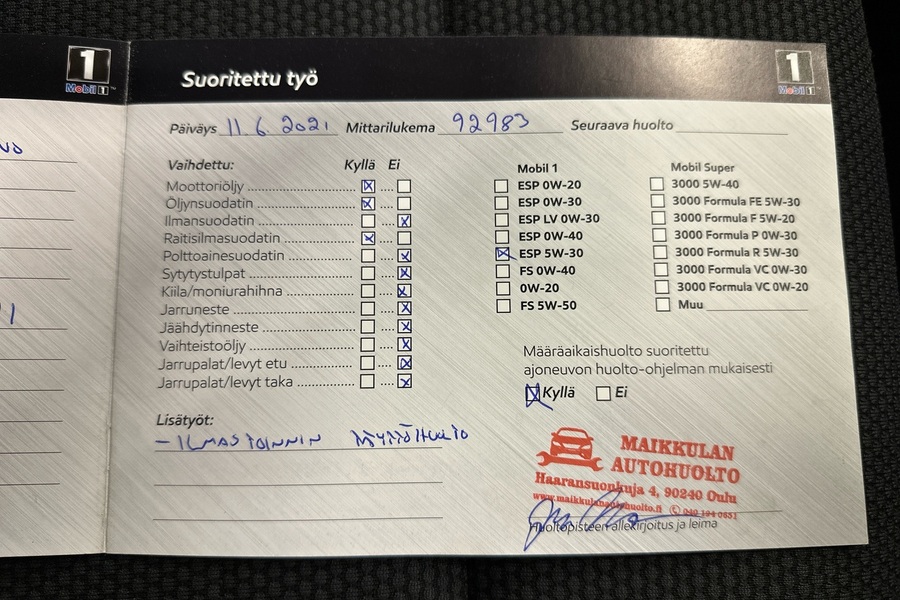 1
Mobil 1
Suoritettu työ
1
Mobil 1
Päiväys 11.6.2021 Mittarilukema 92983 Seuraava huolto
Vaihdettu: Kyllä Ei
Moottoriöljy
Öljynsuodatin
Ilmansuodatin
Raitisilmasuodatin
Polttoainesuodatin
Sytytystulpat
Kiila/moniurahihna
Jarruneste
Jäähdytinneste
Vaihteistoöljy
Jarrupalat/levyt etu
Jarrupalat/levyt taka
Lisätyöt:
- ILMASTOINNIN TÄYTTÖHUOLTO
Mobil 1
ESP 0W-20
ESP 0W-30
ESP LV 0W-30
ESP 0W-40
ESP 5W-30
FS 0W-40
0W-20
FS 5W-50
Mobil Super
3000 5W-40
3000 Formula FE 5W-30
3000 Formula F 5W-20
3000 Formula P 0W-30
3000 Formula R 5W-30
3000 Formula VC 0W-30
3000 Formula VC 0W-20
Muu
Määräaikaishuolto suoritettu
ajoneuvon huolto-ohjelman mukaisesti
Kyllä Ei
MAIKKULAN
AUTOHUOLTO
Haaransuonkuja 4, 90240 Oulu
www.maikkulanautohuolto.fi
Huoltopisteen allekirjoitus ja leima